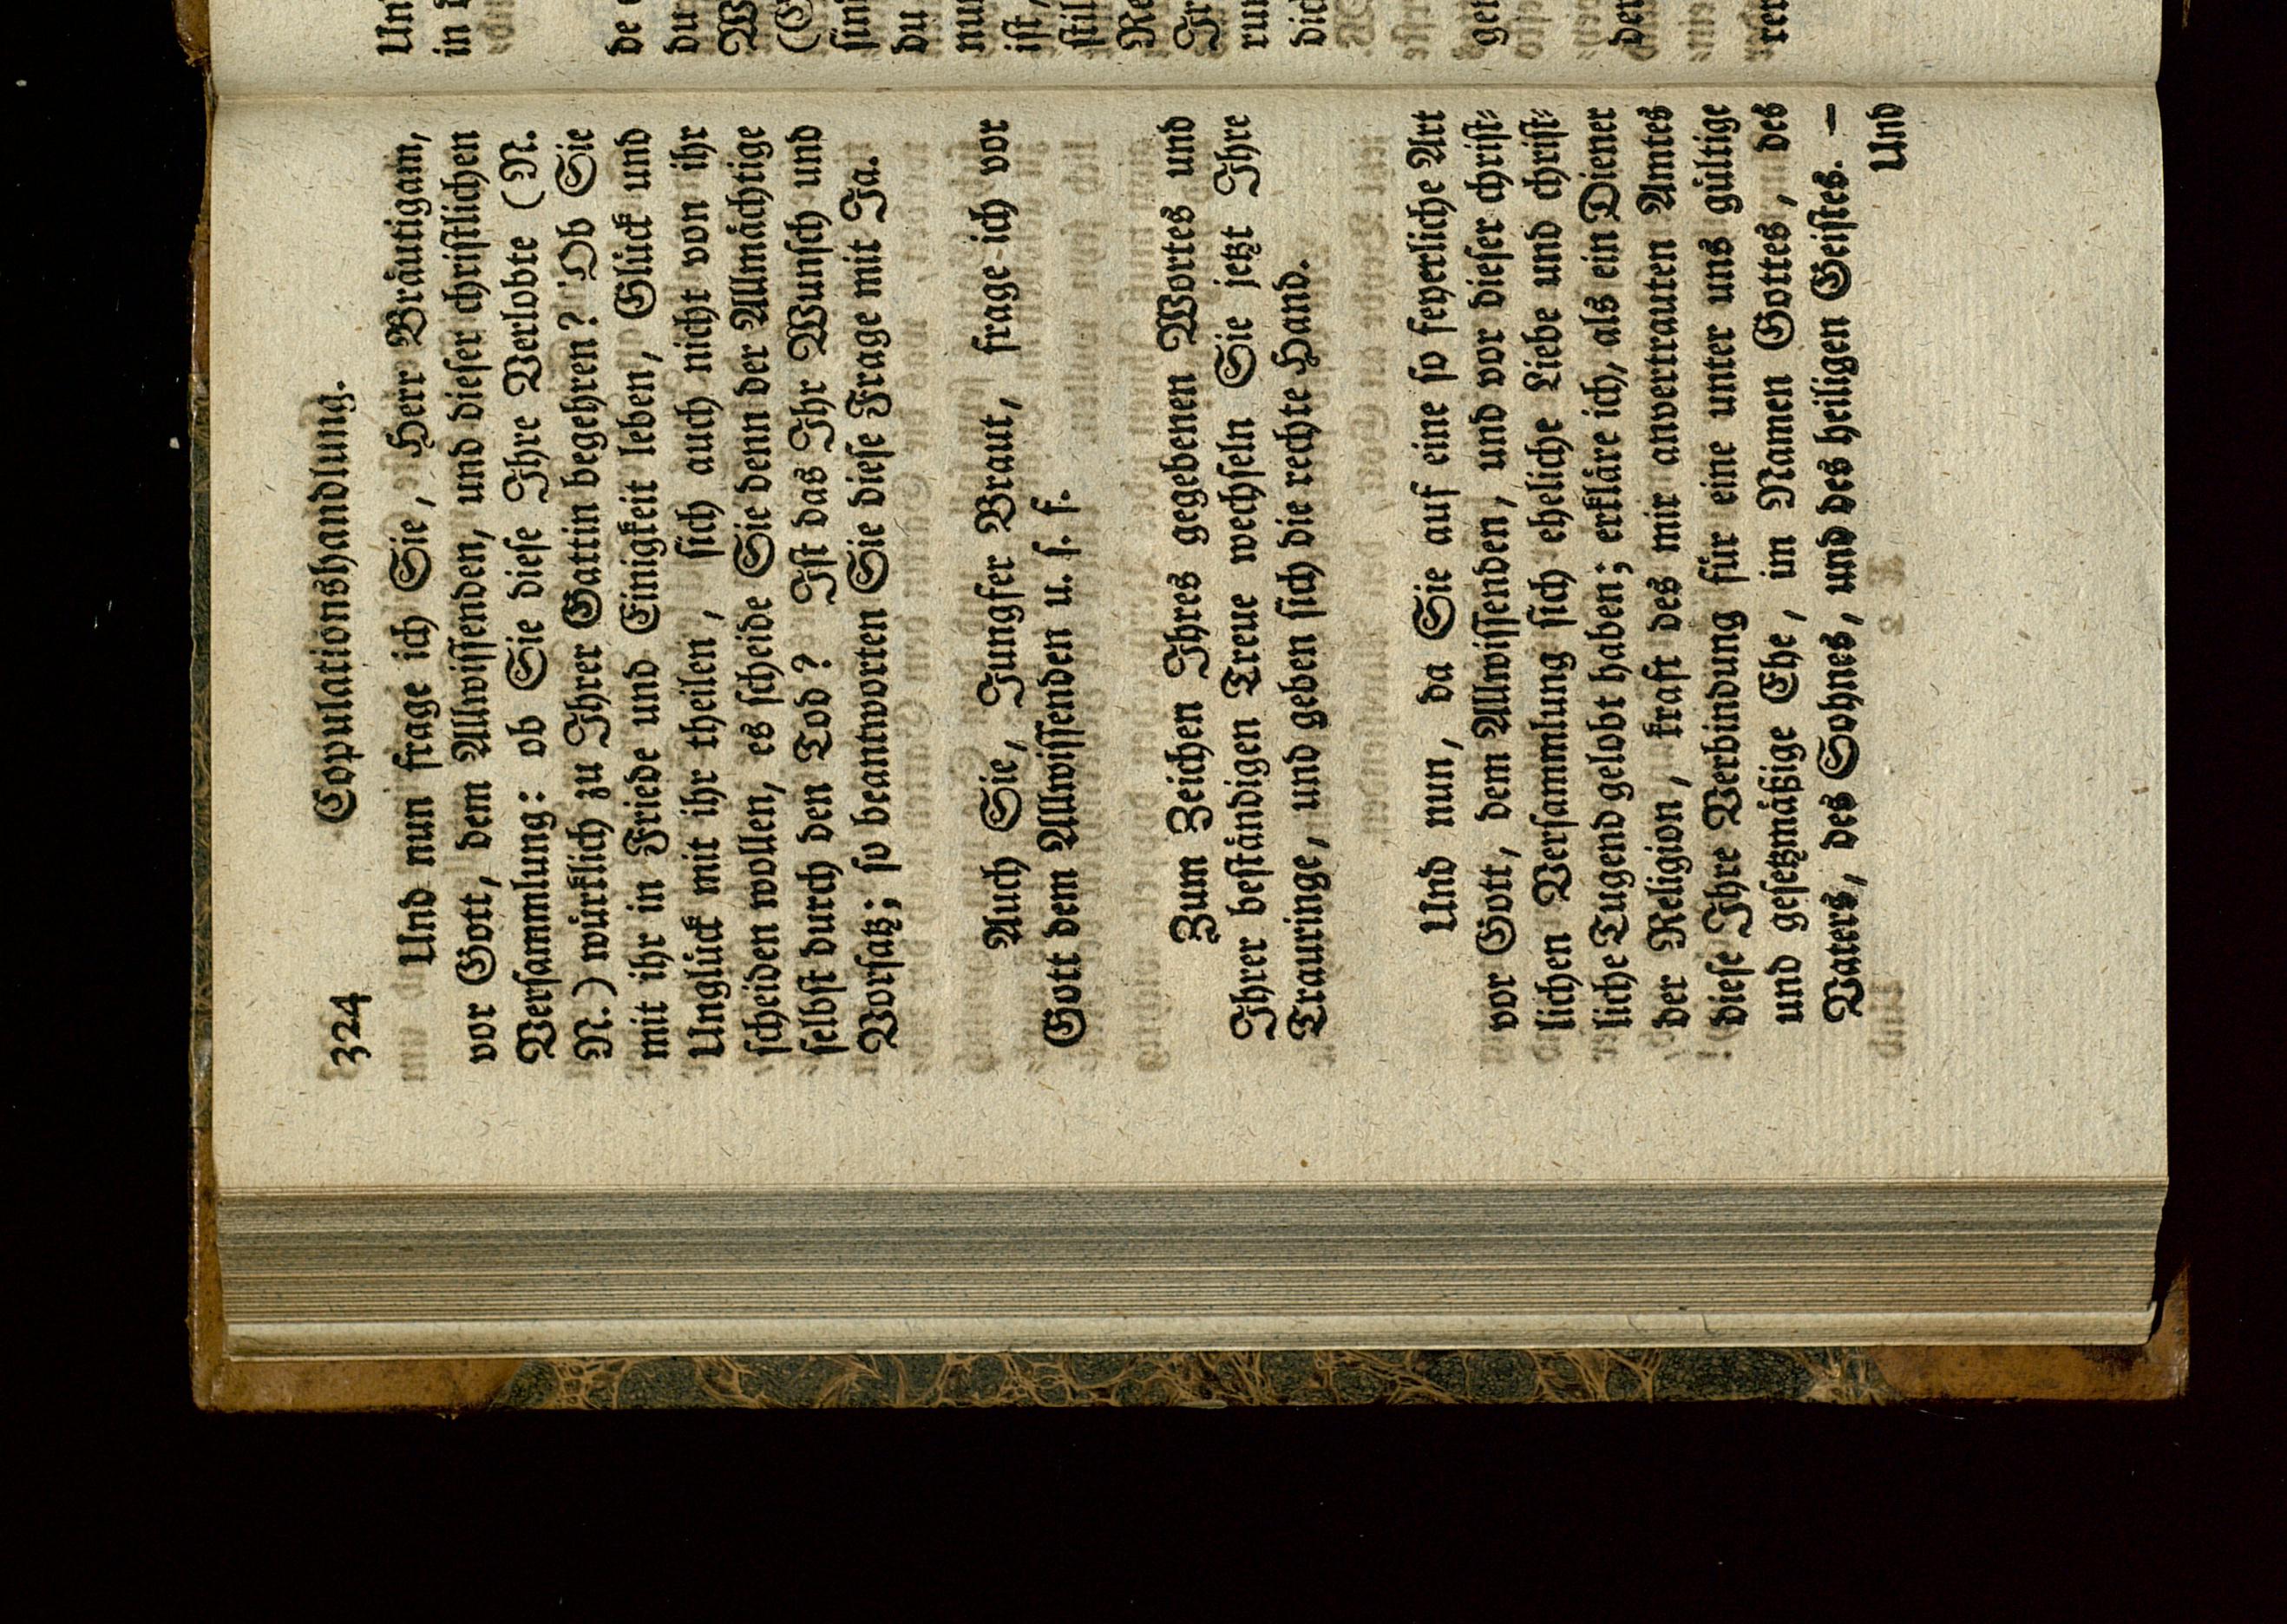 324 Copulationshandlung.
Und nun frage ich Sie, Herr Bräutigam,
vor Gott, dem Allwissenden, und dieser christlichen
Versammlung: ob Sie diese Ihre Verlobte (N.
N.) würklich zu Ihrer Gattin begehren? Ob Sie
mit ihr in Friede und Einigkeit leben, Glück und
Unglück mit ihr theilen, sich auch nicht von ihr
scheiden wollen, es scheide Sie denn der Allmächtige
selbst durch den Tod? Ist das Ihr Wunsch und
Vorsatz; so beantworten Sie diese Frage mit Ja.
Auch Sie, Jungfer Braut, frage ich vor
Gott dem Allwissenden u. s. f.
Zum Zeichen Ihres gegebenen Wortes und
Ihrer beständigen Treue wechseln Sie jetzt Ihre
Trauringe, und geben sich die rechte Hand.
Und nun, da Sie auf eine so feyerliche Art
vor Gott, dem Allwissenden, und vor dieser christ-
lichen Versammlung sich eheliche Liebe und christ-
liche Tugend gelobt haben; erkläre ich, als ein Diener
der Religion, kraft des mir anvertrauten Amtes
diese Ihre Verbindung für eine unter uns gültige
und gesetzmäßige Ehe, im Namen Gottes, des
Vaters, des Sohnes, und des heiligen Geistes. —
Und